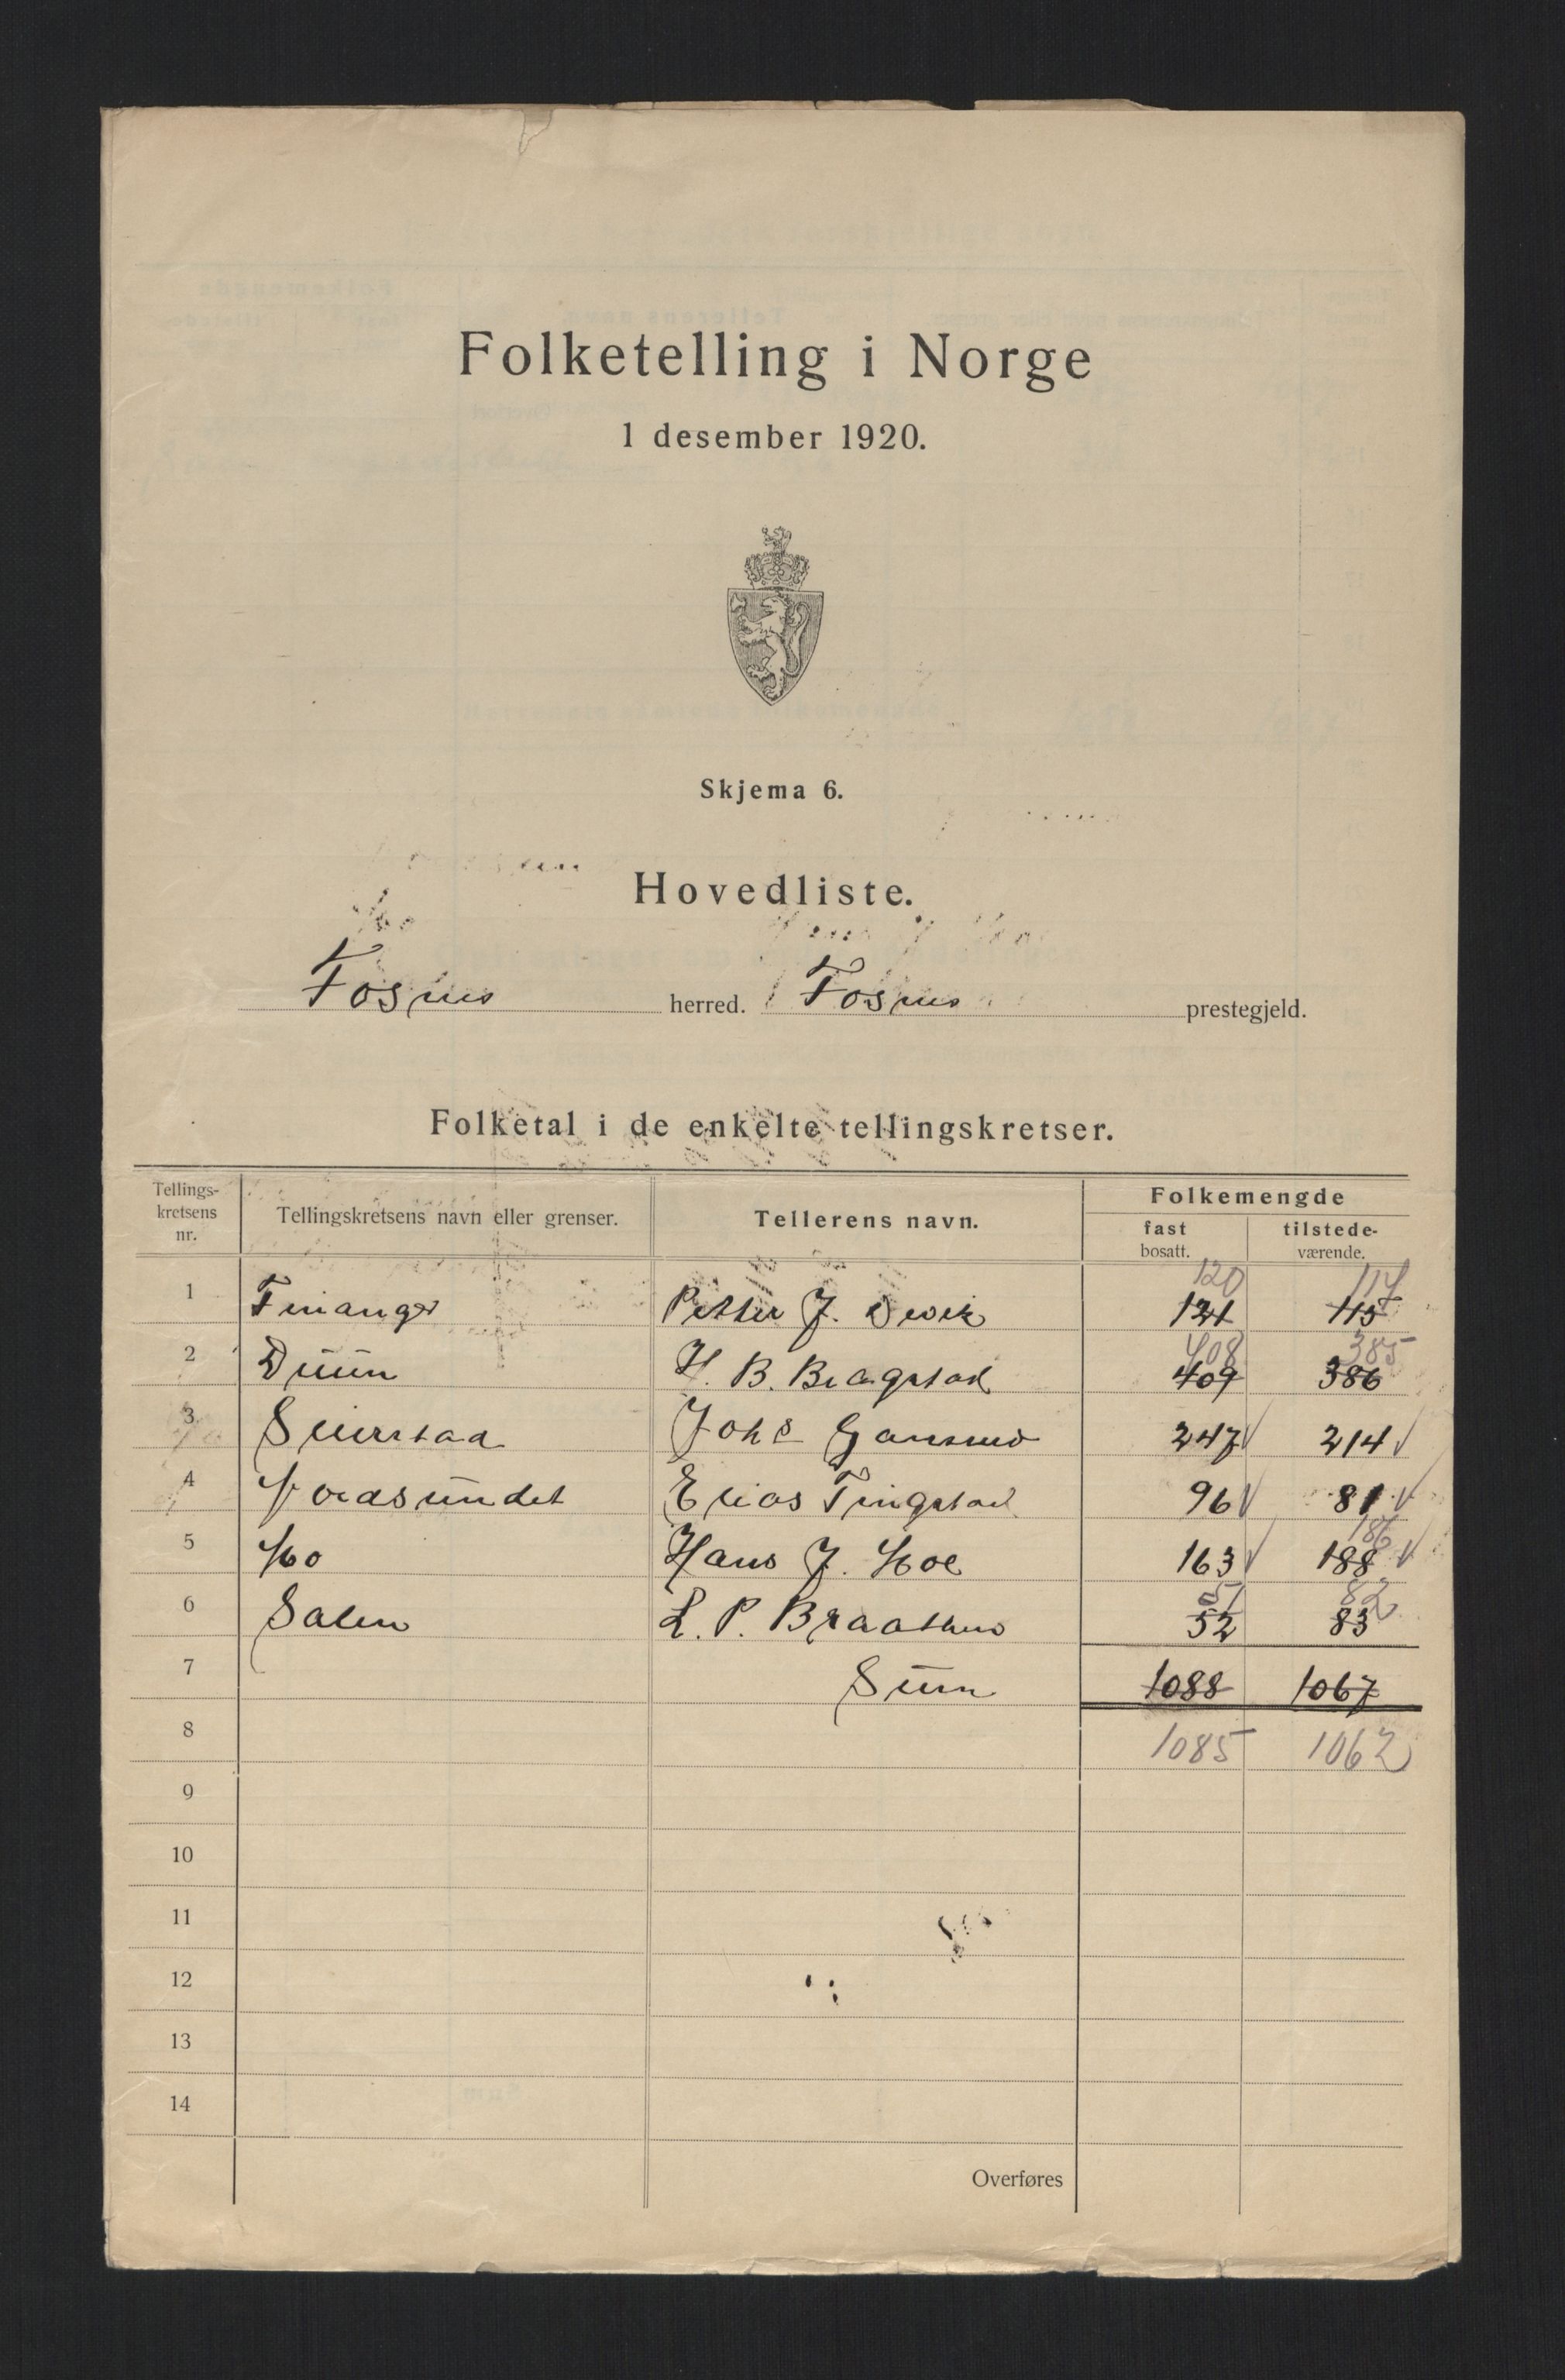 Folketelling i Norge
1 desember 1920.
Skjema 6.
Hovedliste.
Fosnes herred. Fosnes prestegjeld.
Folketal i de enkelte tellingskretser.
Tellings-kretsens nr. Tellingskretsens navn eller grenser. Tellerens navn. Folkemengde
fast bosatt. tilstede-værende.
120 114
1 Finanger Petter J. 121 115
408 385
2 Duun H. B. Bragstad 409 386
3 Seierstad Johs Gansmo 247 √ 214 √
4 Nordsundet Elias Tingstad 96 √ 81 √
186
5 Mo Hans J. Moe 163 √ 188 √
51 82
6 Salen L. P. Braathen 52 83
7 Sum 1088 1067
8 1085 1062
9
10
11
12
13
14
Overføres